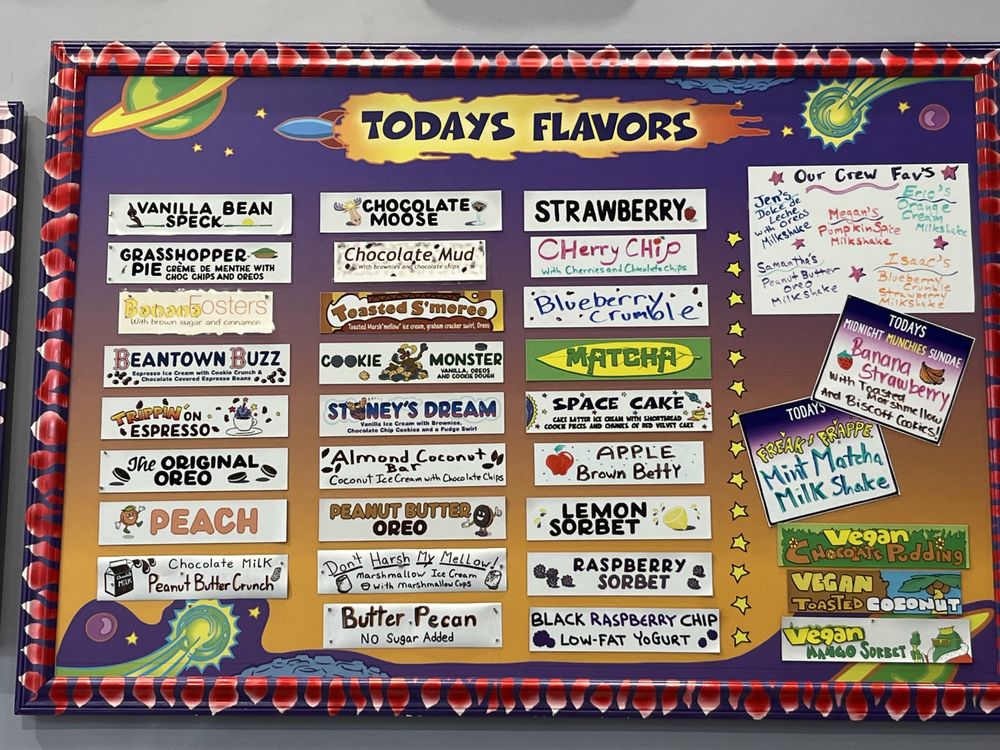 TODAYS FLAVORS
VANILLA BEAN
SPECK
GRASSHOPPER
PIE CRÈME DE MENTHE WITH
CHOC CHIPS AND OREOS
Banana Fosters
With brown sugar and cinnamon
BEANTOWN BUZZ
Espresso Ice Cream with Cookie Crunch &
Chocolate Covered Espresso Beans
TRIPPIN' ON
ESPRESSO
The ORIGINAL
OREO
PEACH
CHOCOLATE MILK
Chocolate Milk
Peanut Butter Crunch
CHOCOLATE
MOOSE
Chocolate Mud
With brownies and chocolate chips
Toasted S'moreo
Toasted Marsh'mellow ice cream, graham cracker swirl, Oreos
COOKIE MONSTER
VANILLA, OREOS
AND COOKIE DOUGH
STONEY'S DREAM
Vanilla Ice Cream with Brownies,
Chocolate Chip Cookies and a Fudge Swirl
Almond Coconut
Bar
Coconut Ice Cream with Chocolate Chips
PEANUT BUTTER
OREO
Don't Harsh My Mellow!
Marshmallow Ice Cream
with Marshmallow Cups
Butter Pecan
NO Sugar Added
STRAWBERRY
CHerry CHip
With Cherries and Chocolate Chips
Blueberry
Crumble
MATCHA
SPACE CAKE
CAKE BATTER ICE CREAM WITH SHORTBREAD
COOKIE PIECES AND CHUNKS OF RED VELVET CAKE
APPLE
Brown Betty
LEMON
SORBET
RASPBERRY
SORBET
BLACK RASPBERRY CHIP
LOW-FAT YOGURT
Our Crew Fav's
Jen's
Dolce de
Leche
with Oreos
Milkshake
Megan's
Pumpkin Spice
Milkshake
Eric's
Orange
Cream
Milkshake
Samantha's
Peanut Butter
Oreo
Milkshake
Isaac's
Blueberry
Crumble
Strawberry
Milkshake
TODAYS
MIDNIGHT MUNCHIES SUNDAE
Banana
Strawberry
With Toasted
Marshmellow
And Biscoff Cookies!
TODAYS
FREAK'S FRAPPE
Mint Matcha
Milk Shake
Vegan
Chocolate Pudding
VEGAN
TOASTED COCONUT
Vegan
MANGO SORBET